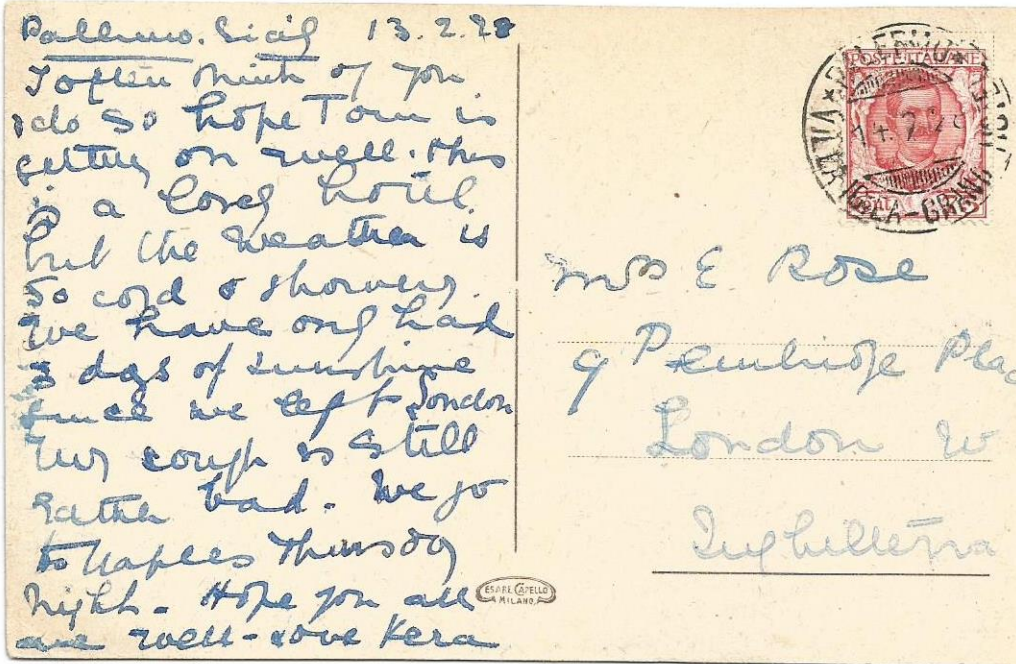 Palermo. Sicily 13.2.28
I often think of you
& do so hope Tom is
getting on well. This
is a lovely hotel
but the weather is
so cold & showery.
We have only had
3 days of sunshine
since we left London
my cough is still
rather bad. We go
to Naples Thursday
night - Hope you all
are well - Love Vera
POSTE ITALIANE
14.2.28
Mrs E Rose
9 Pembroke Plac
London W
Inghilterra
CESARE CAPELLO
MILANO